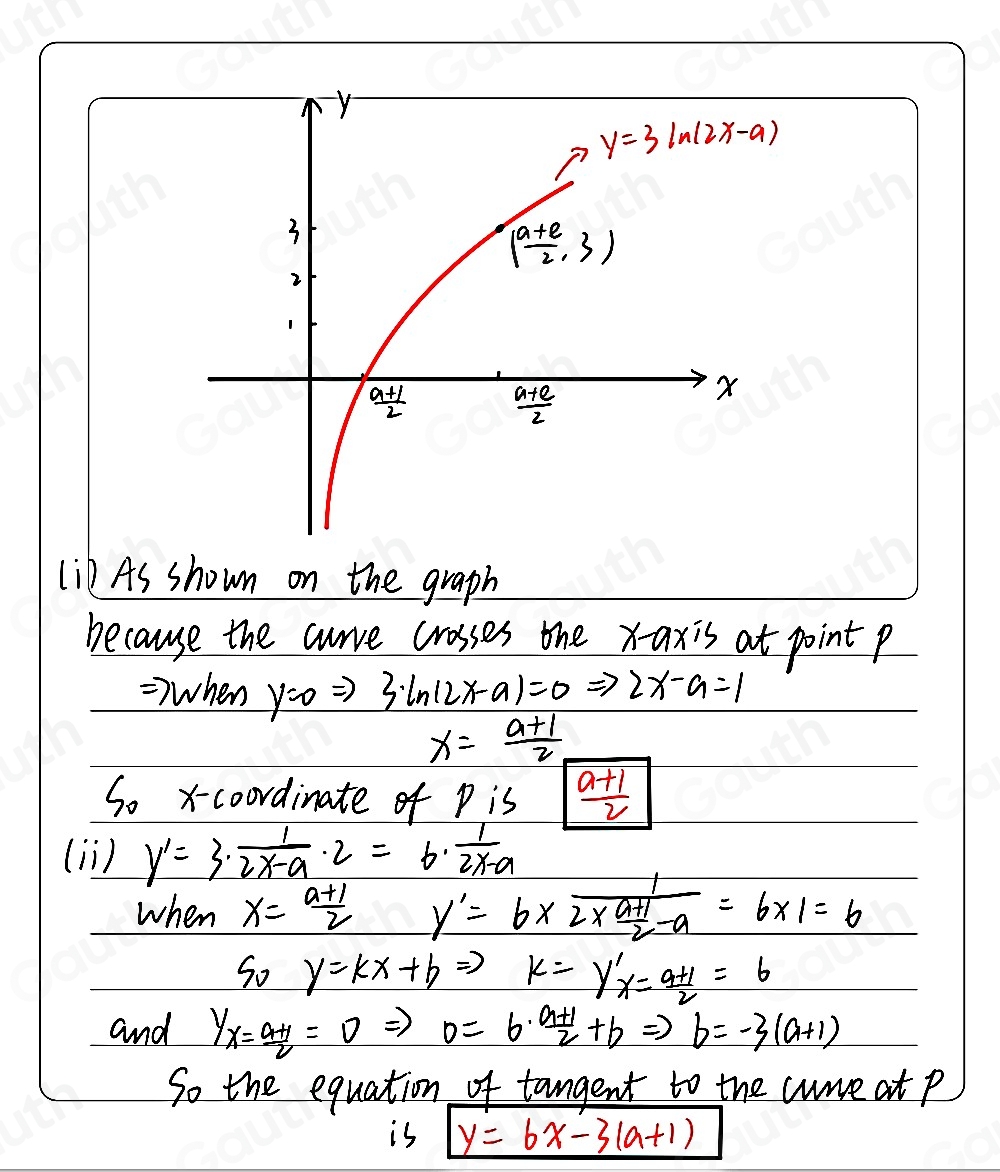 y
y=3 ln(2x-a)
3
(a+e/2, 3)
2
1
a+1/2
a+e/2
x
(i) As shown on the graph
because the curve crosses the x-axis at point p
=>when y=0 => 3·ln(2x-a)=0 => 2x-a=1
x= a+1/2
So x-coordinate of P is a+1/2
(ii) y'= 3·1/2x-a·2 = 6·1/2x-a
when x= a+1/2 y'= 6× 1/2×a+1/2-a = 6×1=6
So y=kx+b => k= y'x=a+1/2 = 6
and yx=a+1/2 = 0 => 0= 6·a+1/2+b => b=-3(a+1)
So the equation of tangent to the curve at P
is y= 6x-3(a+1)
Gauth